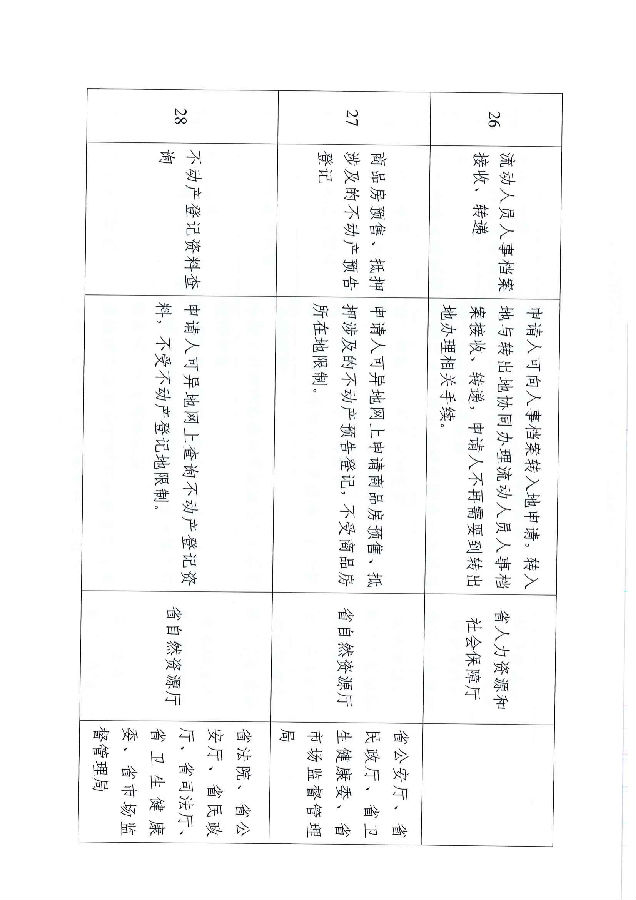 26
流动人员人事档案
接收、转递
申请人可向人事档案转入地申请，转入
地与转出地协同办理流动人员人事档
案接收、转递，申请人不再需要到转出
地办理相关手续。
省人力资源和
社会保障厅
27
商品房预售、抵押
涉及的不动产预告
登记
申请人可异地网上申请商品房预售、抵
押涉及的不动产预告登记，不受商品房
所在地限制。
省自然资源厅
省公安厅、省
民政厅、省卫
生健康委、省
市场监督管理
局
28
不动产登记资料查
询
申请人可异地网上查询不动产登记资
料，不受不动产登记地限制。
省自然资源厅
省法院、省公
安厅、省民政
厅、省司法厅、
省卫生健康
委、省市场监
督管理局